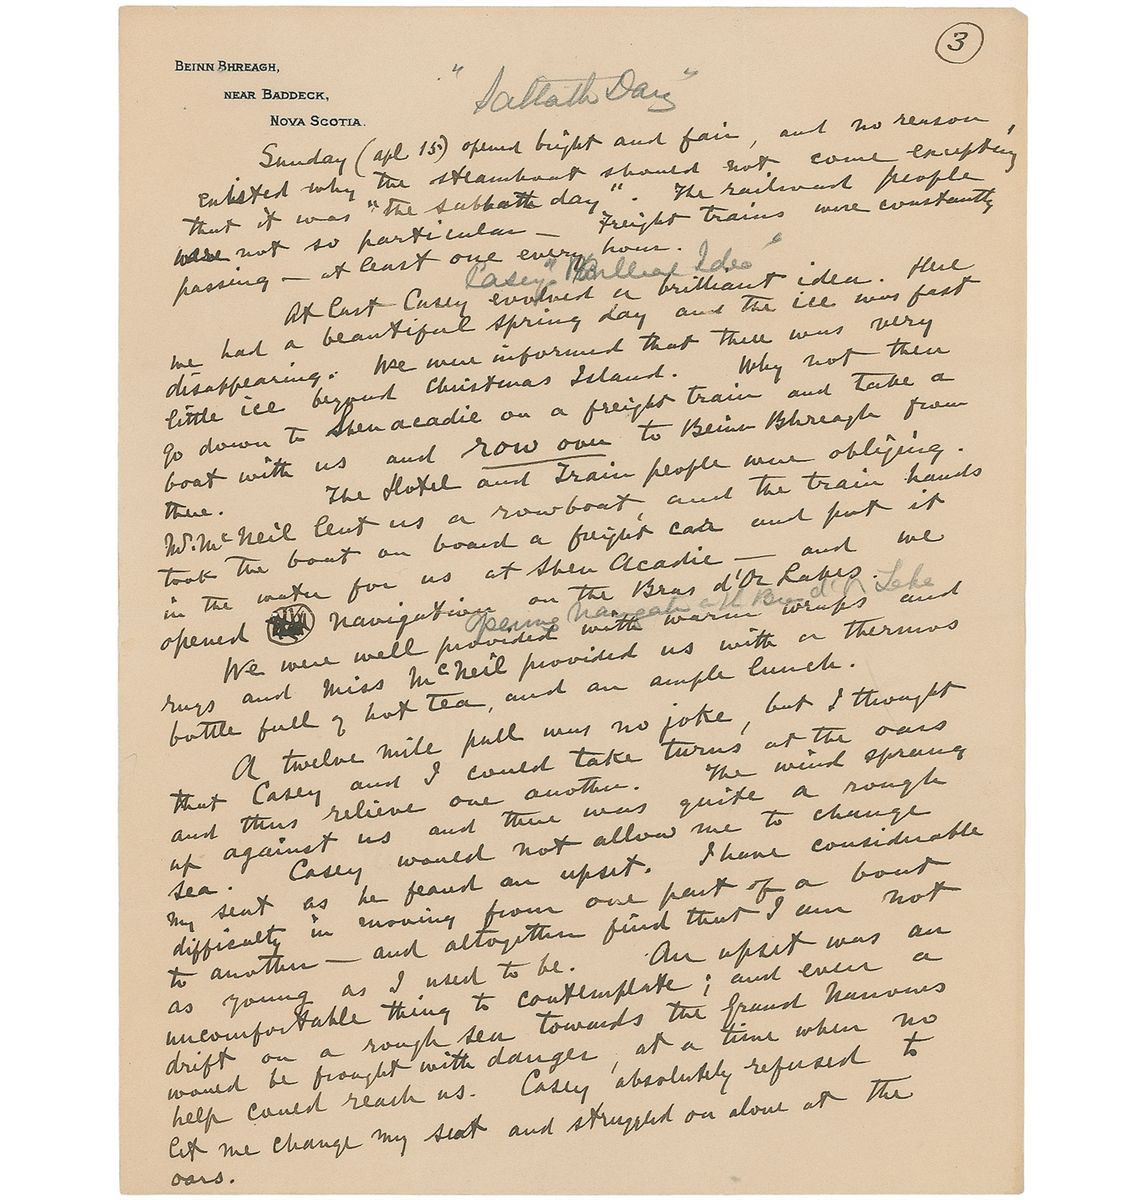 3
BEINN BHREAGH,
NEAR BADDECK,
NOVA SCOTIA.
"Sabbath Day"
Sunday (apl 15) opened bright and fair, and no reason
existed why the steamboat should not come excepting
that it was "the sabbath day". The railroad people
were not so particular — Freight trains were constantly
passing — at least one every hour.
Casey's "Brilliant Idea"
At last Casey evolved a brilliant idea. Here
we had a beautiful spring day and the ice was fast
disappearing. We were informed that there was very
little ice beyond Christmas Island. Why not then
go down to Shenacadie on a freight train and take a
boat with us and row over to Beinn Bhreagh from
there. The Hotel and Train people were obliging.
Mr. McNeil lent us a rowboat, and the train hands
took the boat on board a freight car and put it
in the water for us at Shen Acadie — and we
opened navigation on the Bras d'Or Lakes.
Opening Navigation Bras d'Or Lake
We were well provided with warm wraps and
rugs and Miss McNeil provided us with a thermos
bottle full of hot tea, and an ample lunch.
A twelve mile pull was no joke, but I thought
that Casey and I could take turns at the oars
and thus relieve one another. The wind sprang
up against us and there was quite a rough
sea. Casey would not allow me to change
my seat as he feared an upset. I have considerable
difficulty in moving from one part of a boat
to another — and altogether find that I am not
as young as I used to be. An upset was an
uncomfortable thing to contemplate; and even a
drift on a rough sea towards the Grand Narrows
would be frought with danger, at a time when no
help could reach us. Casey absolutely refused to
let me change my seat and struggled on alone at the
oars.